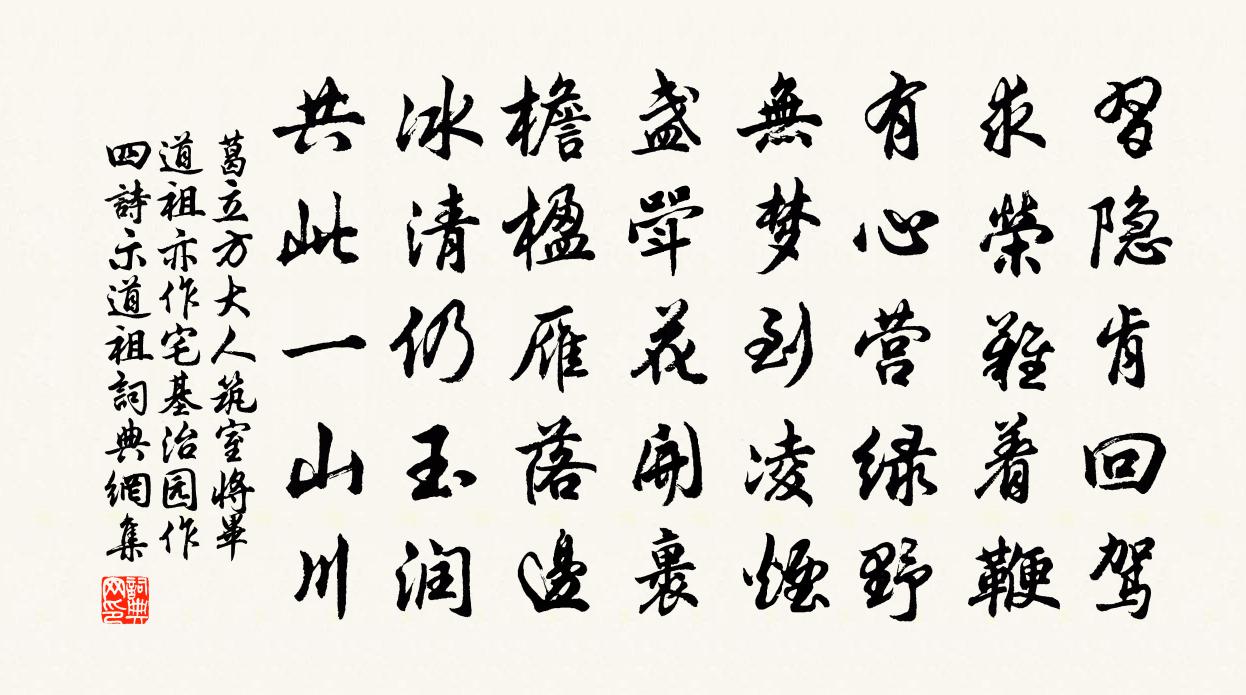 習隐肯回驾
求榮難着鞭
有心营绿野
無梦到凌煙
盏斝花開裹
檐楹雁落邊
冰清仍玉润
共此一山川
葛立方大人筑室將畢
道祖亦作宅基治园作
四詩示道祖詞典網集